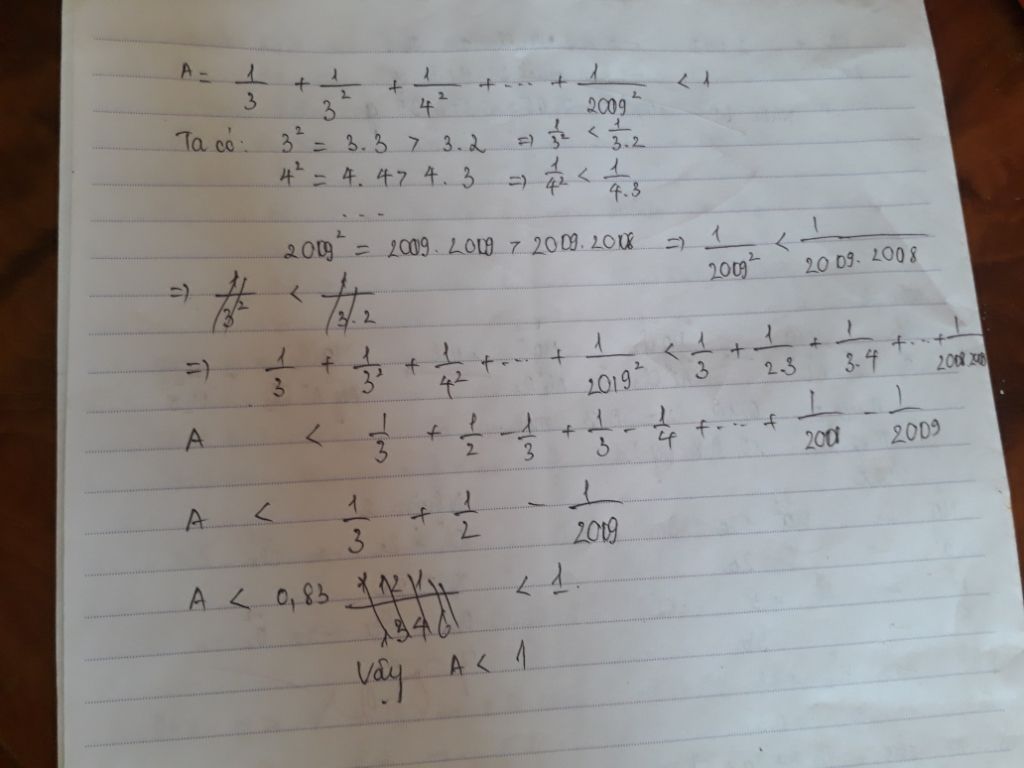 A = 1/3 + 1/3² + 1/4² + ... + 1/2009² < 1
Ta có: 3² = 3.3 > 3.2 => 1/3² < 1/3.2
4² = 4.4 > 4.3 => 1/4² < 1/4.3
...
2009² = 2009.2009 > 2009.2008 => 1/2009² < 1/2009.2008
=> 1/3² < 1/3.2
=> 1/3 + 1/3² + 1/4² + ... + 1/2019² < 1/3 + 1/2.3 + 1/3.4 + ... + 1/2008.2009
A < 1/3 + 1/2 - 1/3 + 1/3 - 1/4 + ... + 1/2008 - 1/2009
A < 1/3 + 1/2 - 1/2009
A < 0,83 < 1.
Vậy A < 1